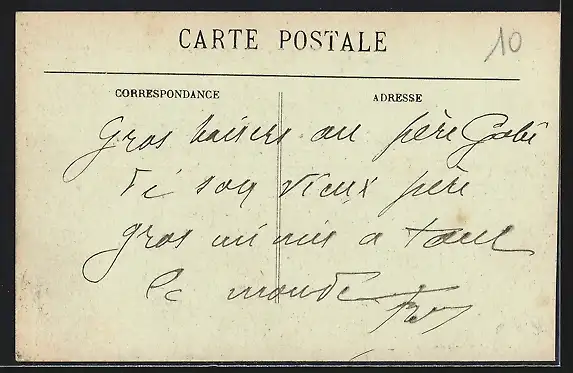 CARTE POSTALE
10
CORRESPONDANCE
ADRESSE
Gros baisers au père
di son vieux père
gros mimis a tout
le monde